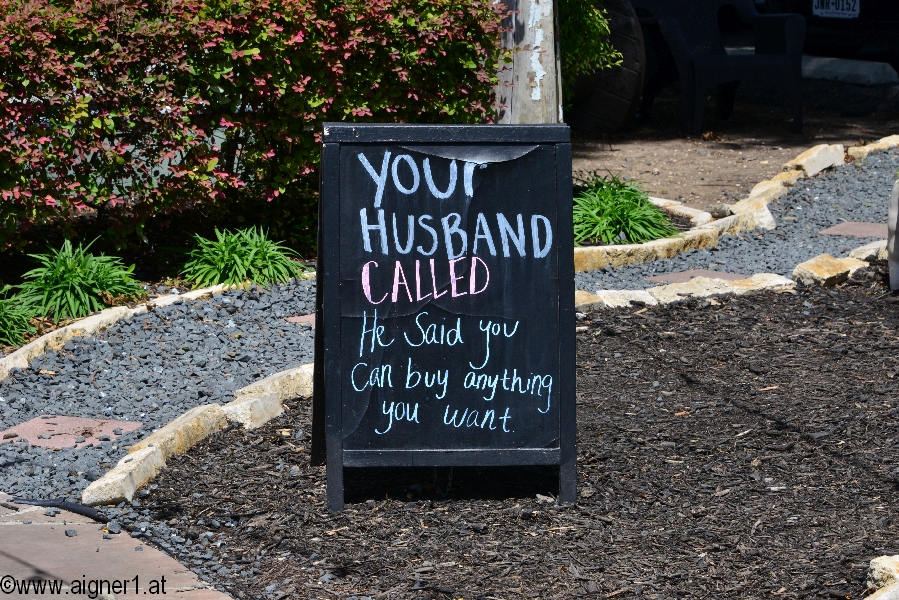 JNR-0152
YOUr
HUSBAND
CALLED
He Said you
Can buy anything
you want.
©www.aigner1.at